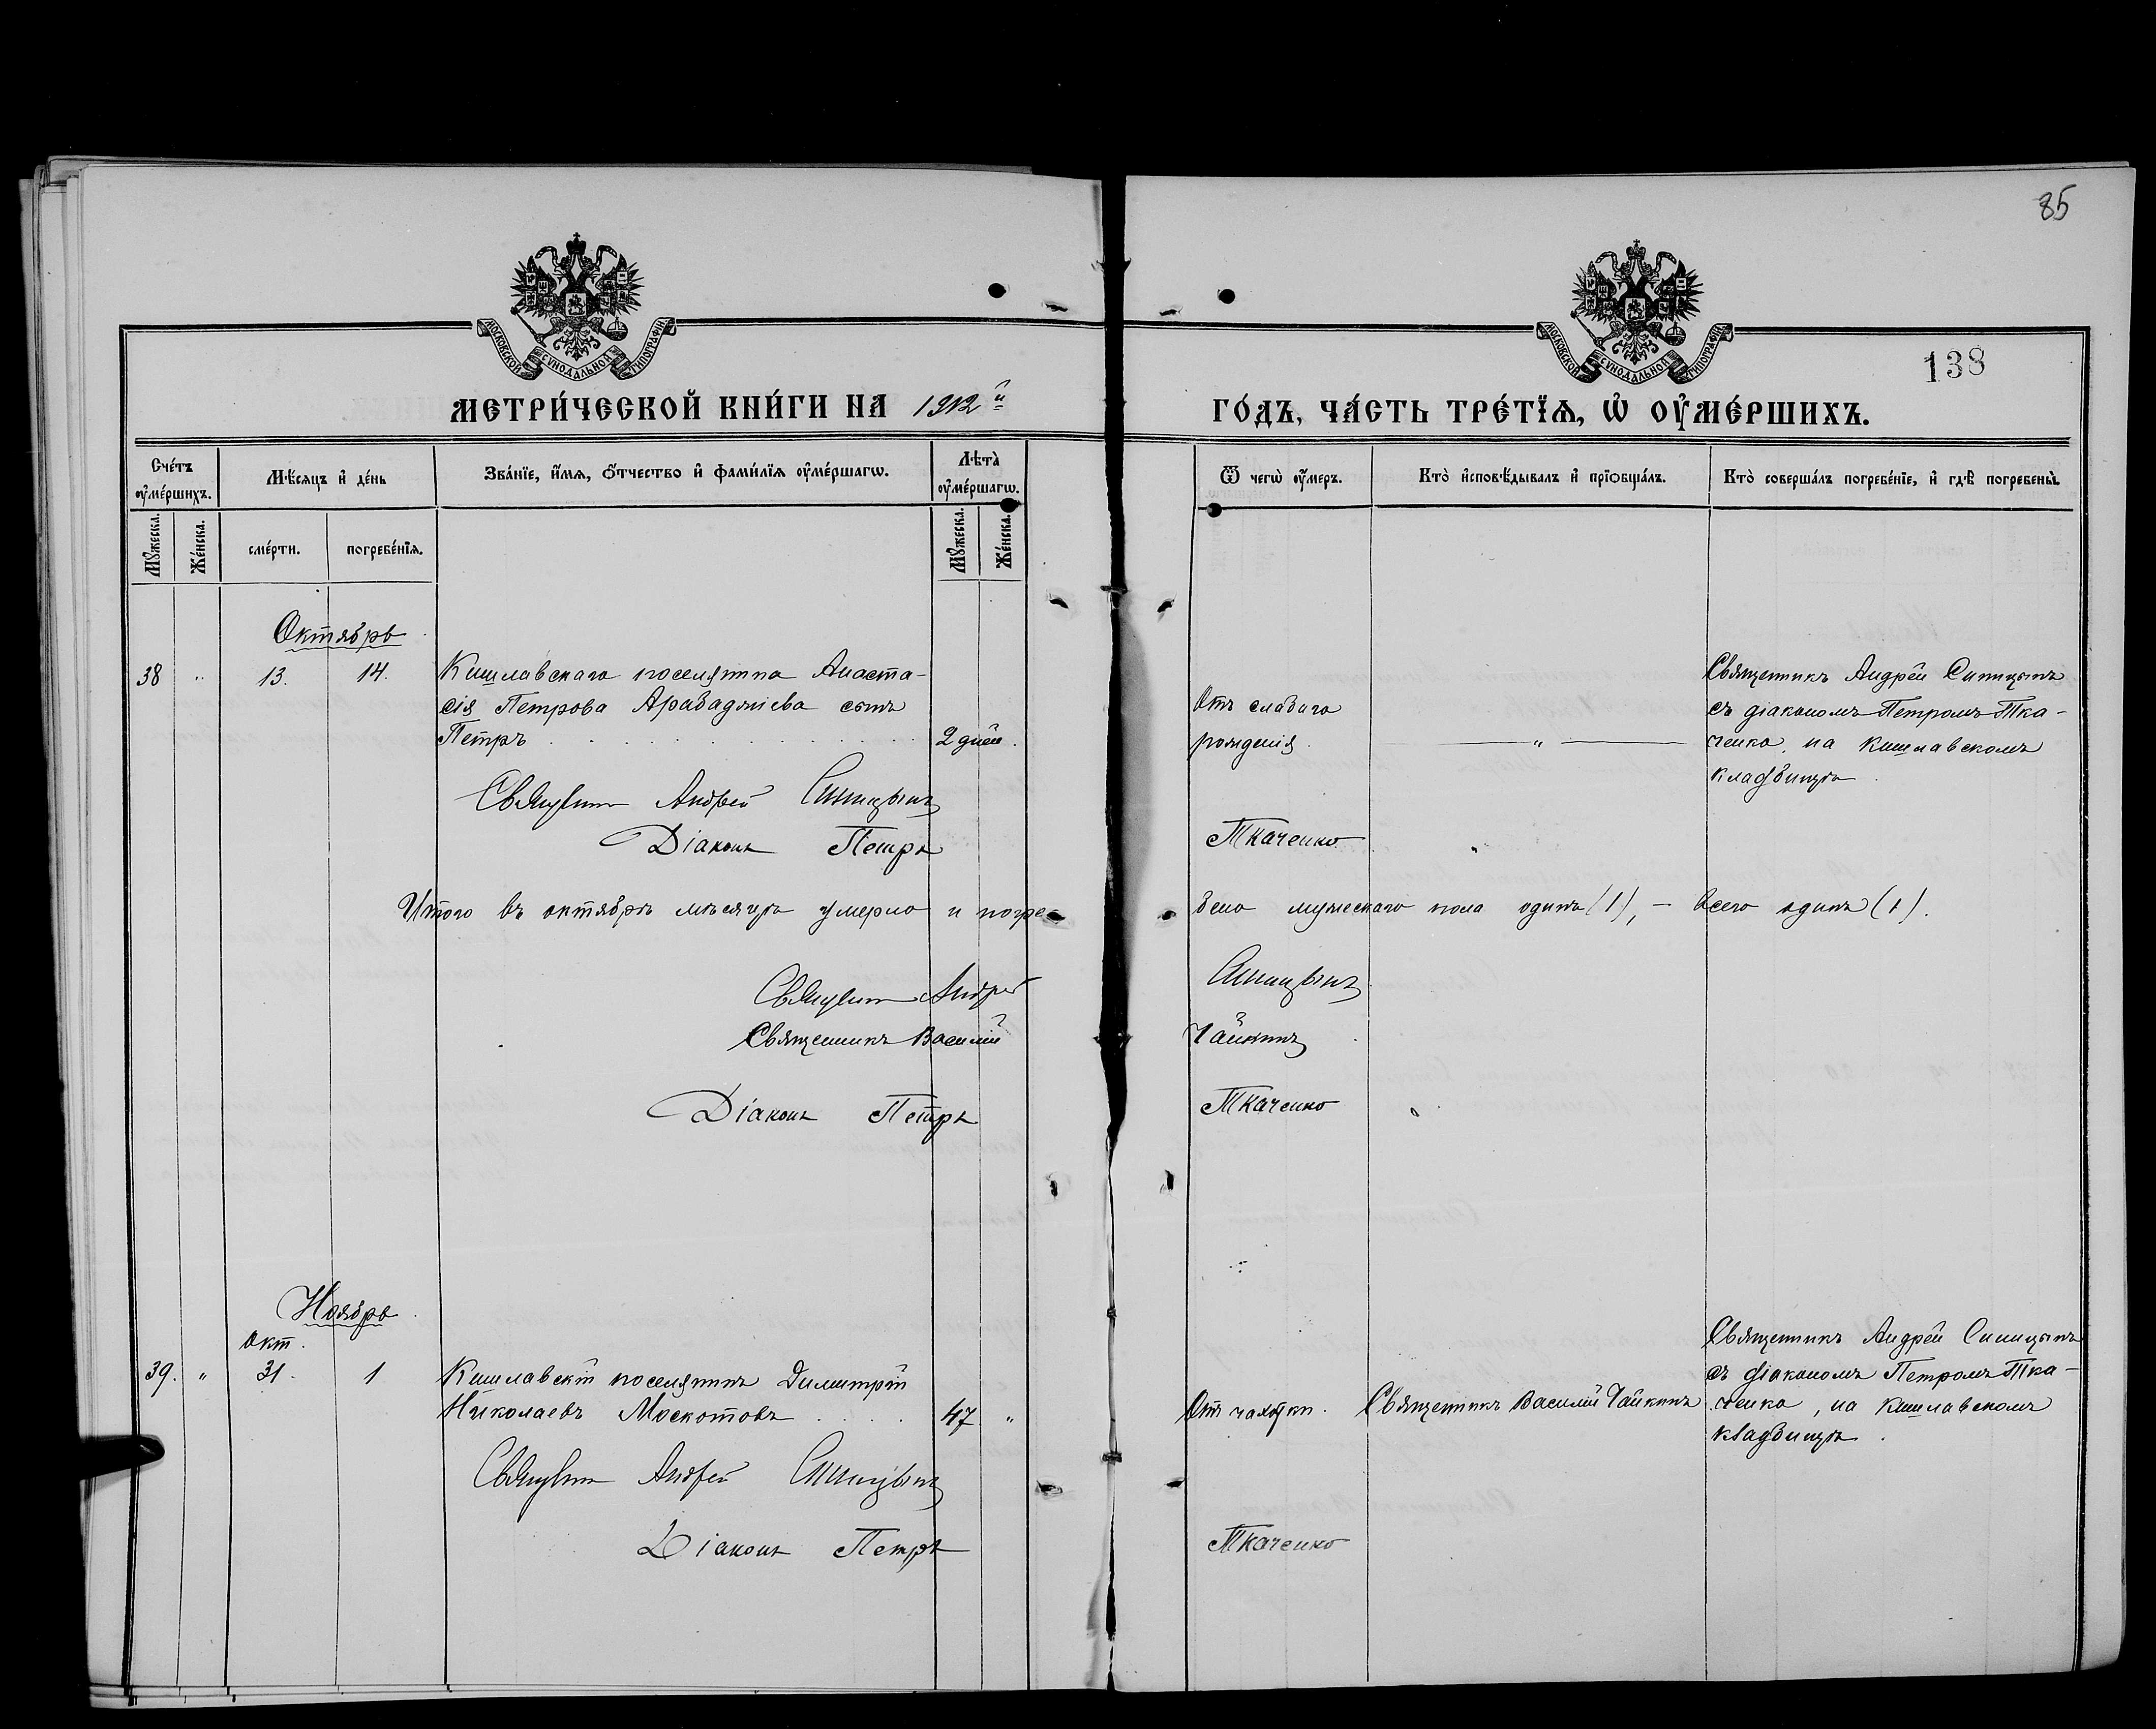 85
МОСКОВСКОЙ СѴНОДАЛЬНОЙ ТИПОГРАФІИ
МОСКОВСКОЙ СѴНОДАЛЬНОЙ ТИПОГРАФІИ
138
МЕТРИ́ЧЕСКОЙ КНИ́ГИ НА 1912й ГО́ДЪ, ЧА́СТЬ ТРЕ́ТЇѦ, Ѡ҆ ОУ҆МЕ́РШИХЪ.
Сче́тъ оу҆ме́ршихъ.
Мѣ́сяцъ и҆ де́нь
Зва́нїе, и҆́мѧ, ѻ҆́тчество и҆ фами́лїѧ оу҆ме́ршагѡ.
Лѣта̀ оу҆ме́ршагѡ.
Ѿ чегѡ̀ оу҆́меръ.
Кто̀ и҆сповѣ́дывалъ и҆ прїѡбща́лъ.
Кто̀ соверша́лъ погребе́нїе, и҆ гдѣ̀ погребены̀.
Мꙋ́жеска.
Же́нска.
сме́рти.
погребе́нїѧ.
Мꙋ́жеска.
Же́нска.
Октябрь
38 " 13. 14. Кишлавскаго поселянина Анаста-
сія Петрова Арабаджіева сынъ
Петръ 2 дней.
Отъ слабаго
рожденія.
— " —
Священникъ Андрей Синицынъ
съ діакономъ Петромъ Тка-
ченко, на Кишлавскомъ
кладбищѣ.
Священник Андрей Синицынъ
Діаконъ Петръ Ткаченко
Итого въ октябрѣ мѣсяцѣ умерло и погре-бено мужескаго пола одинъ (1), — Всего одинъ (1).
Священник Андрей Синицынъ
Священникъ Василій Чайкинъ
Діаконъ Петръ Ткаченко
Ноябрь
Окт.
39. " 31. 1 Кишлавскій поселянинъ Димитрій
Николаевъ Москотовъ 47 "
Отъ чахотки.
Священникъ Василій Чайкинъ
Священникъ Андрей Синицынъ
съ діакономъ Петромъ Тка-
ченко, на Кишлавскомъ
кладбищѣ.
Священник Андрей Синицынъ
Діаконъ Петръ Ткаченко